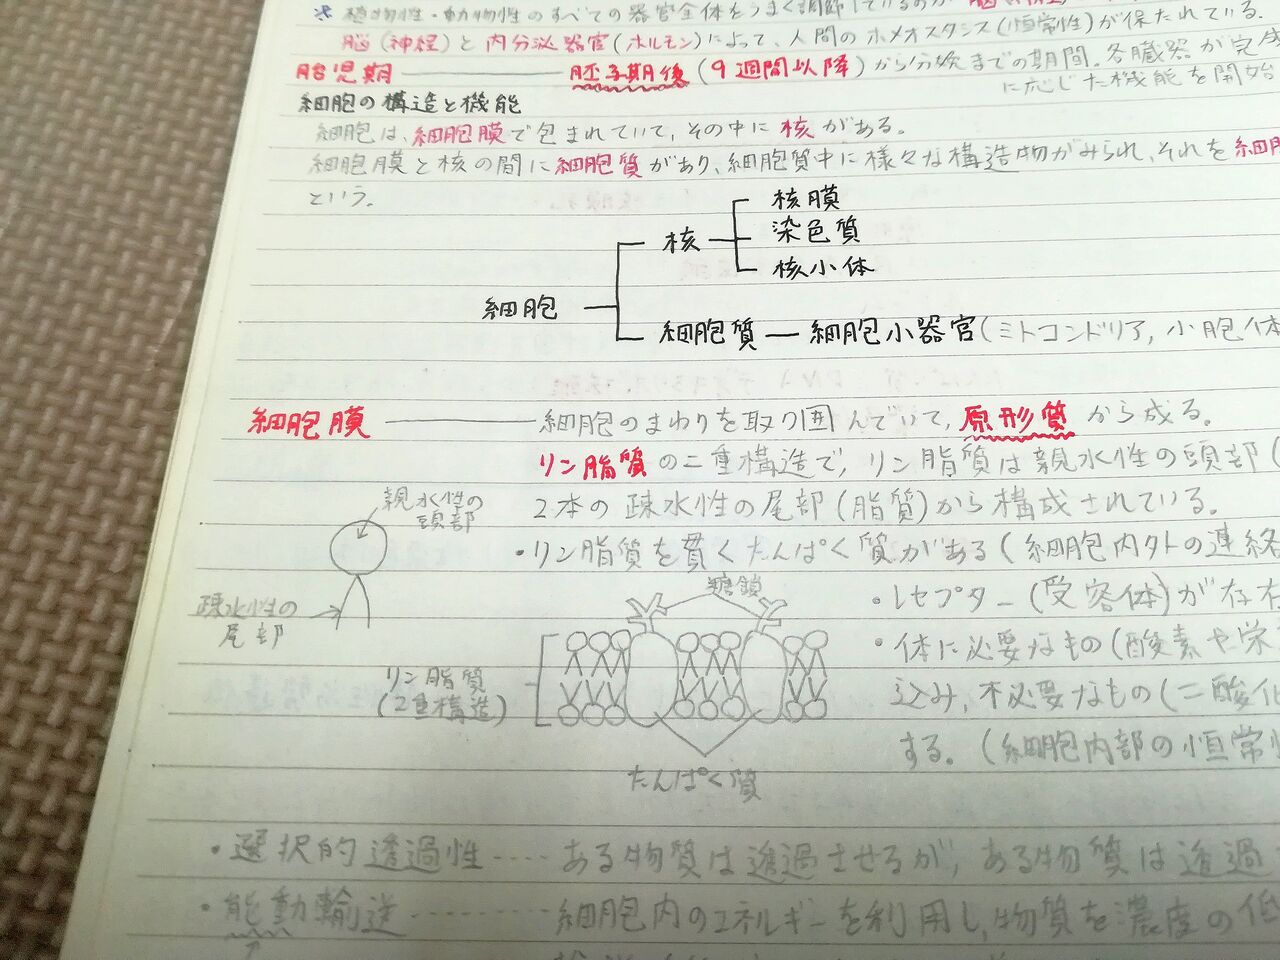 ※ 植物性・動物性のすべての器官全体をうまく調節しているのが
脳(神経)と内分泌器官(ホルモン)によって、人間のホメオスタシス(恒常性)が保たれている。
胎児期 胚子期後(9週間以降)から分娩までの期間。各臓器が完成
に応じた機能を開始
細胞の構造と機能
細胞は、細胞膜で包まれていて、その中に核がある。
細胞膜と核の間に細胞質があり、細胞質中に様々な構造物がみられ、それを細胞
という。
核膜
核 染色質
核小体
細胞
細胞質 ― 細胞小器官(ミトコンドリア, 小胞体
細胞膜 細胞のまわりを取り囲んでいて, 原形質から成る。
リン脂質の二重構造で, リン脂質は親水性の頭部(
2本の疎水性の尾部(脂質)から構成されている。
親水性の
頭部
・リン脂質を貫くたんぱく質がある(細胞内外の連絡
疎水性の
尾部
糖鎖
・レセプター(受容体)が存在
・体に必要なもの(酸素や栄
リン脂質
(2重構造)
込み, 不必要なもの(二酸化
する。(細胞内部の恒常性
たんぱく質
・選択的透過性‥‥ ある物質は透過させるが, ある物質は透過
・能動輸送‥‥‥‥ 細胞内のエネルギーを利用し, 物質を濃度の低